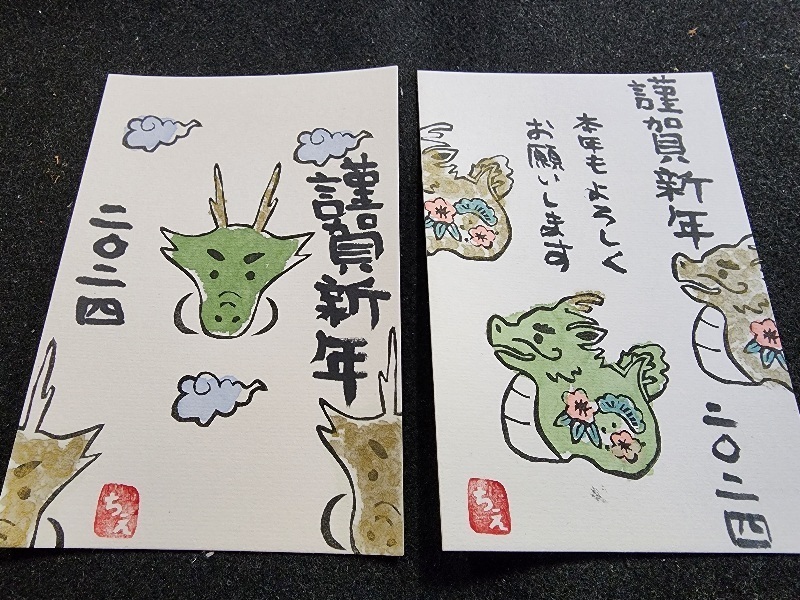 謹賀新年
二〇二四
ちえ
謹賀新年
本年もよろしく
お願いします
二〇二四
ちえ